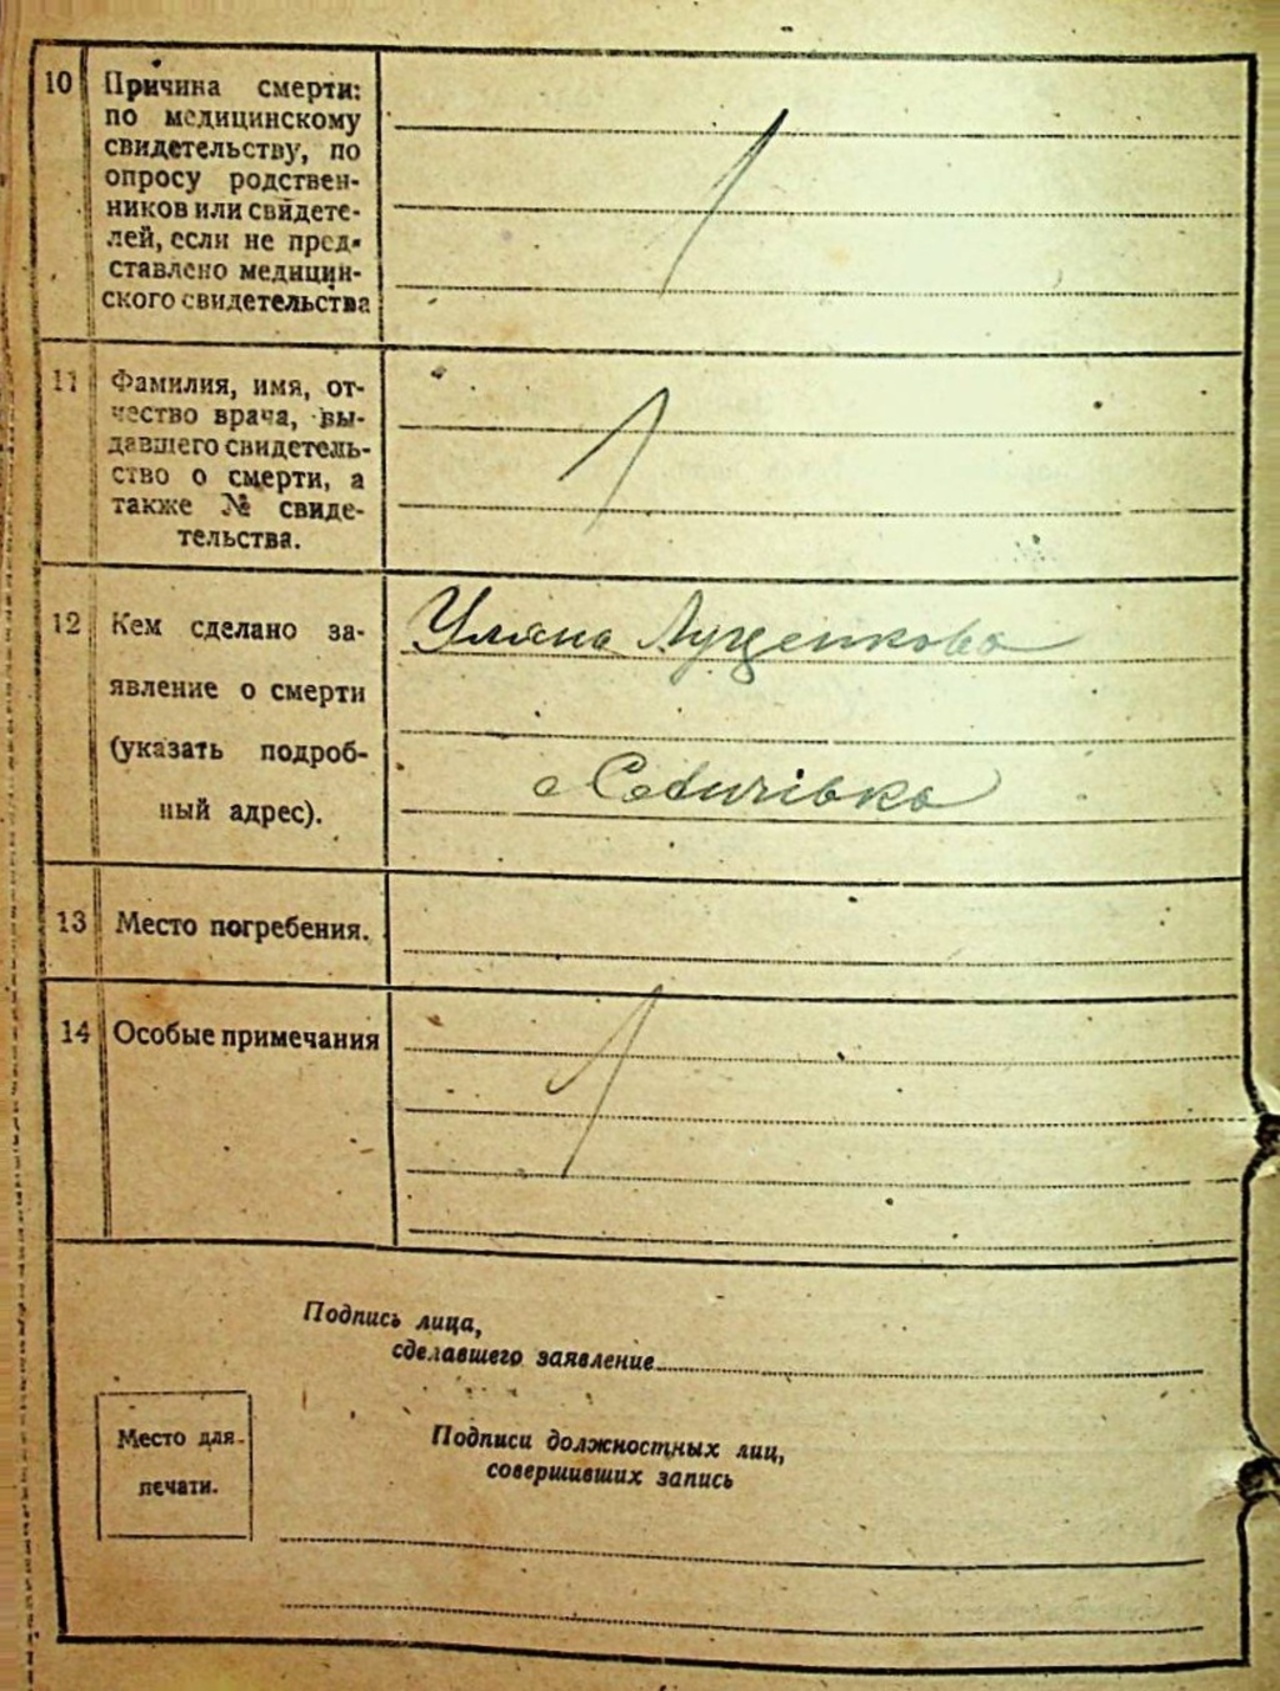 10 Причина смерти:
по медицинскому
свидетельству, по
опросу родствен-
ников или свидете-
лей, если не пред-
ставлено медицин-
ского свидетельства
11 Фамилия, имя, от-
чество врача, вы-
давшего свидетель-
ство о смерти, а
также № свиде-
тельства.
12 Кем сделано за- Уляна Луценкова
явление о смерти
(указать подроб- с Савичівка
ный адрес).
13 Место погребения.
14 Особые примечания
Подпись лица,
сделавшего заявление
Место для
печати.
Подписи должностных лиц,
совершивших запись